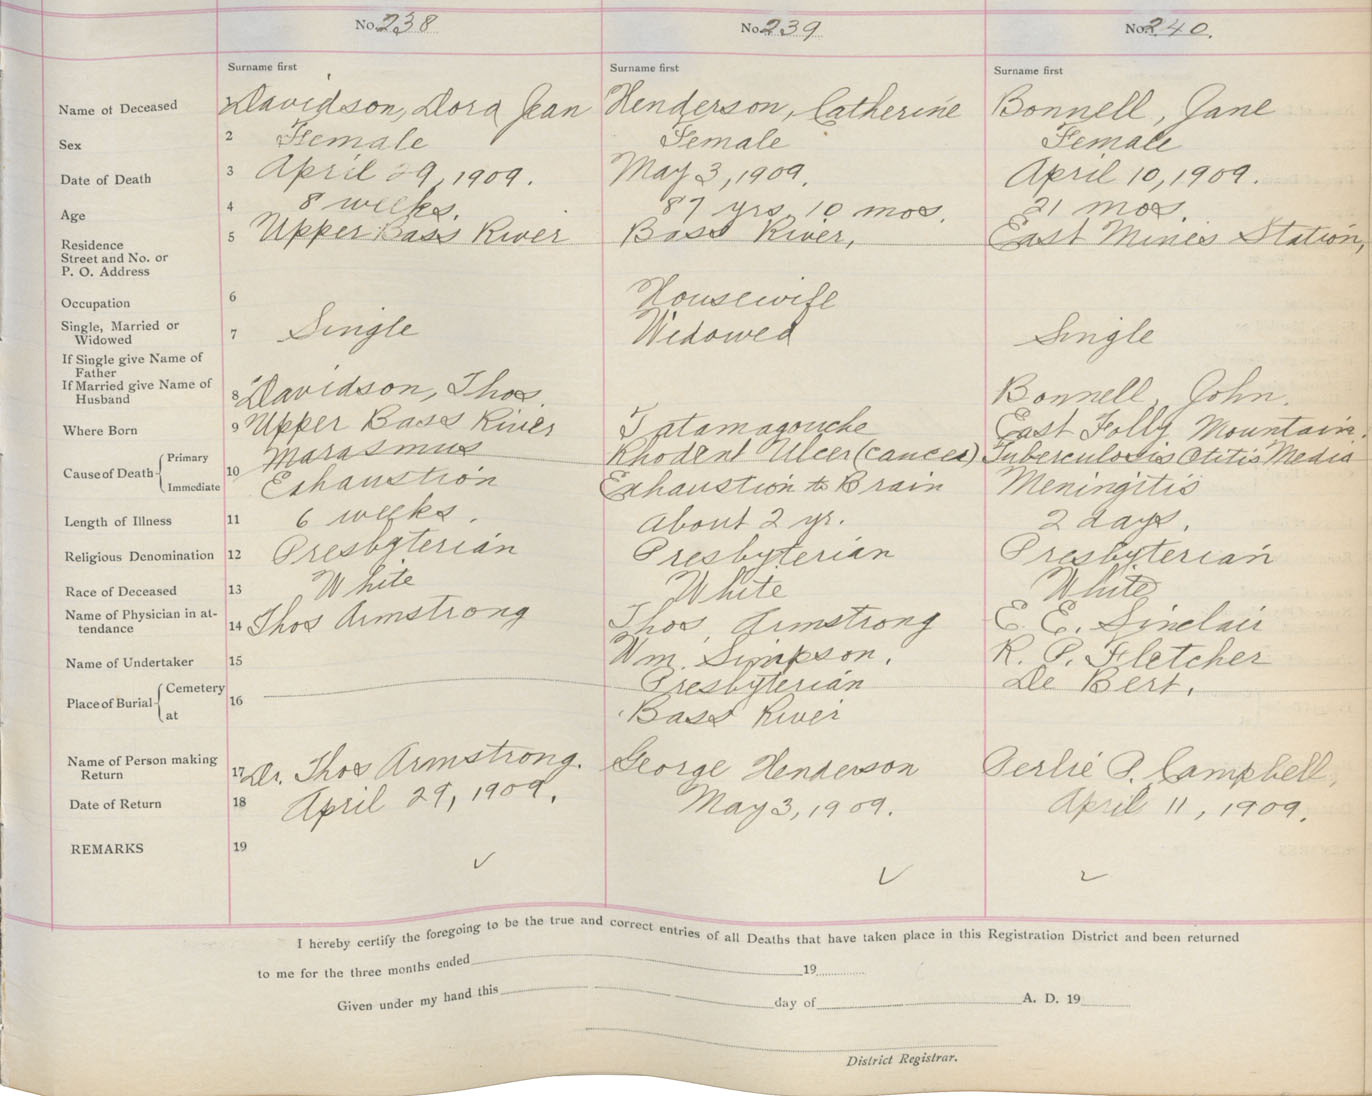 No. 238 No. 239 No. 240.
Surname first Surname first Surname first
Name of Deceased 1 Davidson, Dora Jean Henderson, Catherine Bonnell, Jane
Sex 2 Female Female Female
Date of Death 3 April 29, 1909. May 3, 1909. April 10, 1909.
Age 4 8 weeks. 87 yrs. 10 mos. 21 mos.
Residence 5 Upper Bass River Bass River, East Mines Station,
Street and No. or
P. O. Address
Occupation 6 Housewife
Single, Married or
Widowed 7 Single Widowed Single
If Single give Name of
Father
If Married give Name of
Husband 8 Davidson, Thos. Bonnell, John.
Where Born 9 Upper Bass River Tatamagouche East Folly Mountain.
Cause of Death Primary 10 Marasmus Rhodent Ulcer (cancer) Tuberculosis Otitis Media
Immediate Exhaustion Exhaustion to Brain Meningitis
Length of Illness 11 6 weeks. About 2 yr. 2 days.
Religious Denomination 12 Presbyterian Presbyterian Presbyterian
Race of Deceased 13 White White White
Name of Physician in at-
tendance 14 Thos Armstrong Thos. Armstrong E. E. Sinclair
Name of Undertaker 15 Wm. Simpson. R. P. Fletcher
Place of Burial Cemetery 16 Presbyterian De Bert.
at Bass River
Name of Person making
Return 17 Dr. Thos Armstrong. George Henderson P. Campbell,
Date of Return 18 April 29, 1909. May 3, 1909. April 11, 1909.
REMARKS 19
I hereby certify the foregoing to be the true and correct entries of all Deaths that have taken place in this Registration District and been returned
to me for the three months ended 19
Given under my hand this day of A. D. 19
District Registrar.